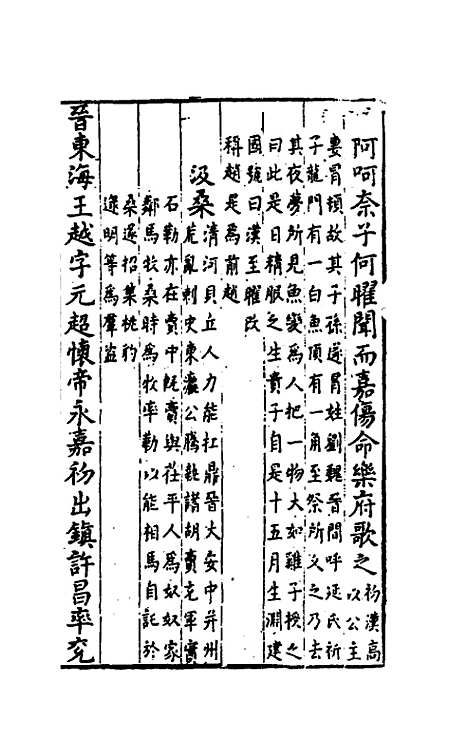 阿呵奈子何曜聞而嘉傷命樂府歌之初漢高
以公主
妻冒頓故其子孫遂冒姓劉魏晉間呼延氏祈
子龍門有一白魚頂有一角至祭所久之乃去
其夜夢所見魚變為人把一物大如雞子授之
曰此是日精服之生貴子自是十五月生淵建
國號曰漢至曜改
稱趙是為前趙
汲桑清河貝丘人力能扛鼎晉大安中并州
荒亂刺史東瀛公騰執諸胡賣充軍實
石勒亦在賣中既賣與茌平人為奴奴家
鄰馬牧桑時為牧率勒以能相馬自託於
桑遂招集桃豹
逯明等為羣盜
晉東海王越字元超懷帝永嘉初出鎮許昌率兗